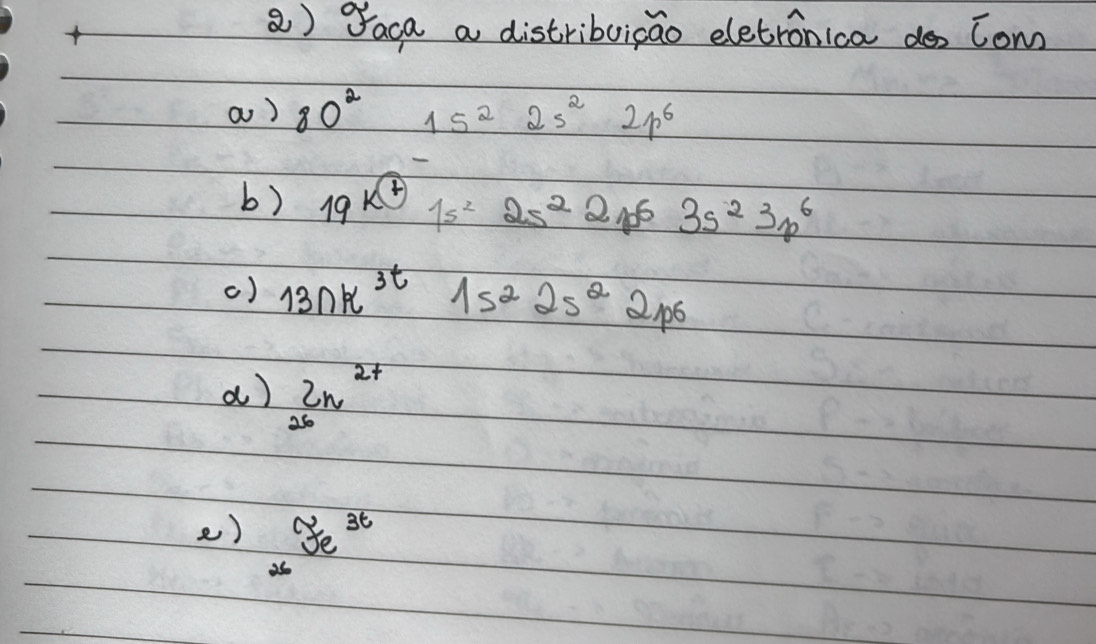 2) Faça a distribuição eletrônica dos íons
a) 8O² 1s² 2s² 2p⁶
b) 19K⁺ 1s² 2s² 2p⁶ 3s² 3p⁶
c) 13Al³⁺ 1s² 2s² 2p⁶
d) ₂₆Zn²⁺
e) ₂₆Fe³⁺